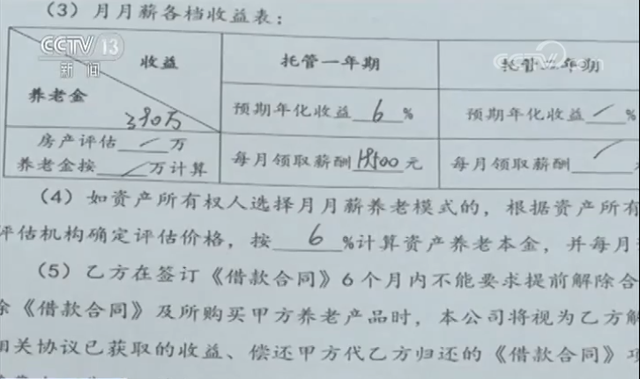 (3) 月月薪各档收益表：
CCTV 13
新闻
CCTV
收益
养老金
390万
托管一年期
托管二年期
预期年化收益 6 %
预期年化收益 / %
房产评估 / 万
养老金按 / 万计算
每月领取薪酬 18500 元
每月领取薪酬 /
(4) 如资产所有权人选择月月薪养老模式的，根据资产所有
评估机构确定评估价格，按 6 %计算资产养老本金，并每月
(5) 乙方在签订《借款合同》6 个月内不能要求提前解除合
除《借款合同》及所购买甲方养老产品时，本公司将视为乙方解
相关协议已获取的收益、偿还甲方代乙方归还的《借款合同》项